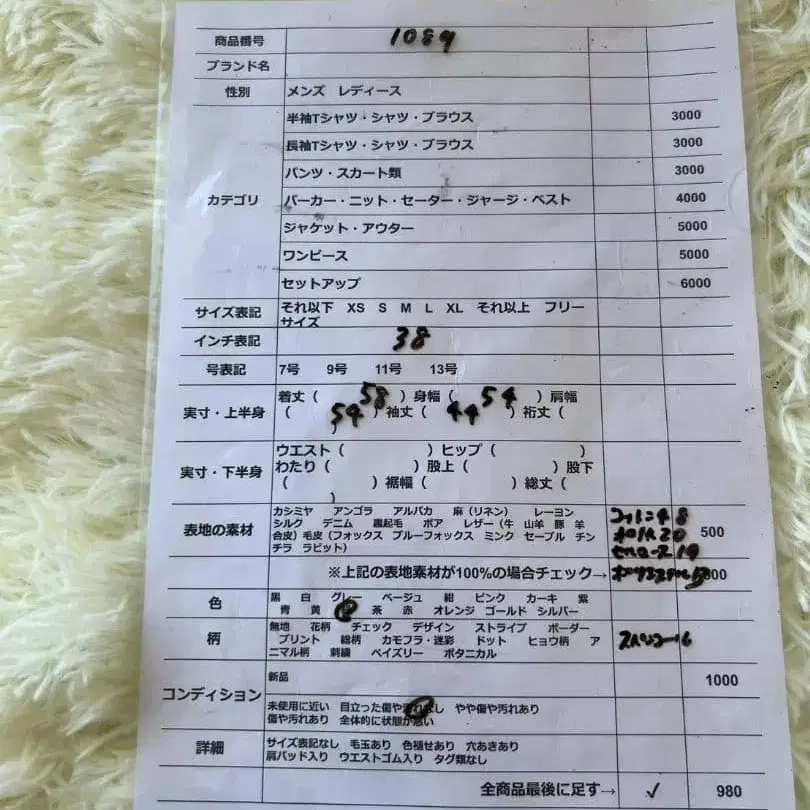 商品番号 1089
ブランド名
性別 メンズ レディース
カテゴリ
半袖Tシャツ・シャツ・ブラウス 3000
長袖Tシャツ・シャツ・ブラウス 3000
パンツ・スカート類 3000
パーカー・ニット・セーター・ジャージ・ベスト 4000
ジャケット・アウター 5000
ワンピース 5000
セットアップ 6000
サイズ表記 それ以下 XS S M L XL それ以上 フリー
サイズ
インチ表記 38
号表記 7号 9号 11号 13号
実寸・上半身
着丈( 58 )身幅( 54 )肩幅
( 54 )袖丈( 44 )裄丈(
)
実寸・下半身
ウエスト( )ヒップ( )
わたり( )股上( )股下
( )裾幅( )総丈(
)
表地の素材
カシミヤ アンゴラ アルパカ 麻(リネン) レーヨン
シルク デニム 裏起毛 ボア レザー(牛 山羊 豚 羊
合皮)毛皮(フォックス ブルーフォックス ミンク セーブル チン
チラ ラビット) 500
※上記の表地素材が100%の場合チェック→
色
黒 白 グレー ベージュ 紺 ピンク カーキ 紫
青 黄 茶 赤 オレンジ ゴールド シルバー
柄
無地 花柄 チェック デザイン ストライプ ボーダー
プリント 総柄 カモフラ・迷彩 ドット ヒョウ柄 ア
ニマル柄 刺繍 ペイズリー ボタニカル
コンディション
新品 1000
未使用に近い 目立った傷や汚れなし やや傷や汚れあり
傷や汚れあり 全体的に状態が悪い
詳細
サイズ表記なし 毛玉あり 色褪せあり 穴あきあり
肩パッド入り ウエストゴム入り タグ類なし
全商品最後に足す→ ✓ 980